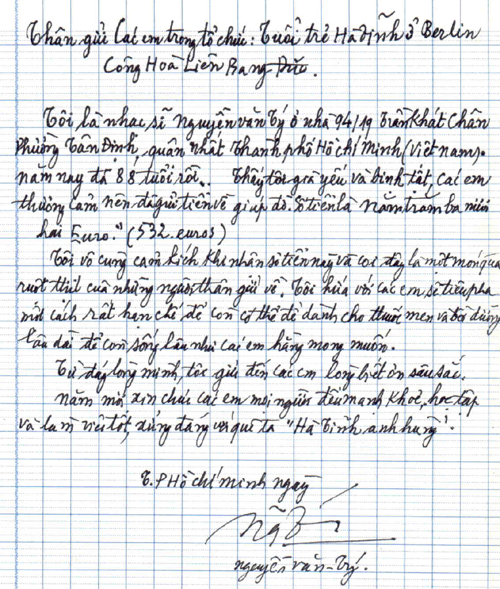 Thân gửi các em trong tổ chức: Tuổi trẻ Hà Tĩnh ở Berlin
Cộng Hoà Liên Bang Đức.
Tôi là nhạc sĩ Nguyễn Văn Tý ở nhà 94/19 Trần Khát Chân
Phường Tân Định, quận nhất Thành phố Hồ Chí Minh (Việt Nam).
năm nay đã 88 tuổi rồi... Thấy tôi già yếu và bệnh tật, các em
thương cảm nên đã gửi tiền về giúp đỡ. Số tiền là năm trăm ba mươi
hai Euro." (532.euros)
Tôi vô cùng cảm kích khi nhận số tiền này và coi đây là một món quà
ruột thịt của những người thân gửi về. Tôi hứa với các em sẽ tiêu pha
một cách rất hạn chế để con có thể để dành cho thuốc men và bồi dưỡng
lâu dài để con sống lâu như các em hằng mong muốn.
Từ đáy lòng mình, tôi gửi đến các em lòng biết ơn sâu sắc.
năm mới xin chúc các em mọi người đều mạnh khoẻ, học tập
và làm việc tốt, xứng đáng với quê ta "Hà Tĩnh anh hùng".
T.P Hồ Chí Minh ngày
Nguyễn Văn-Tý.